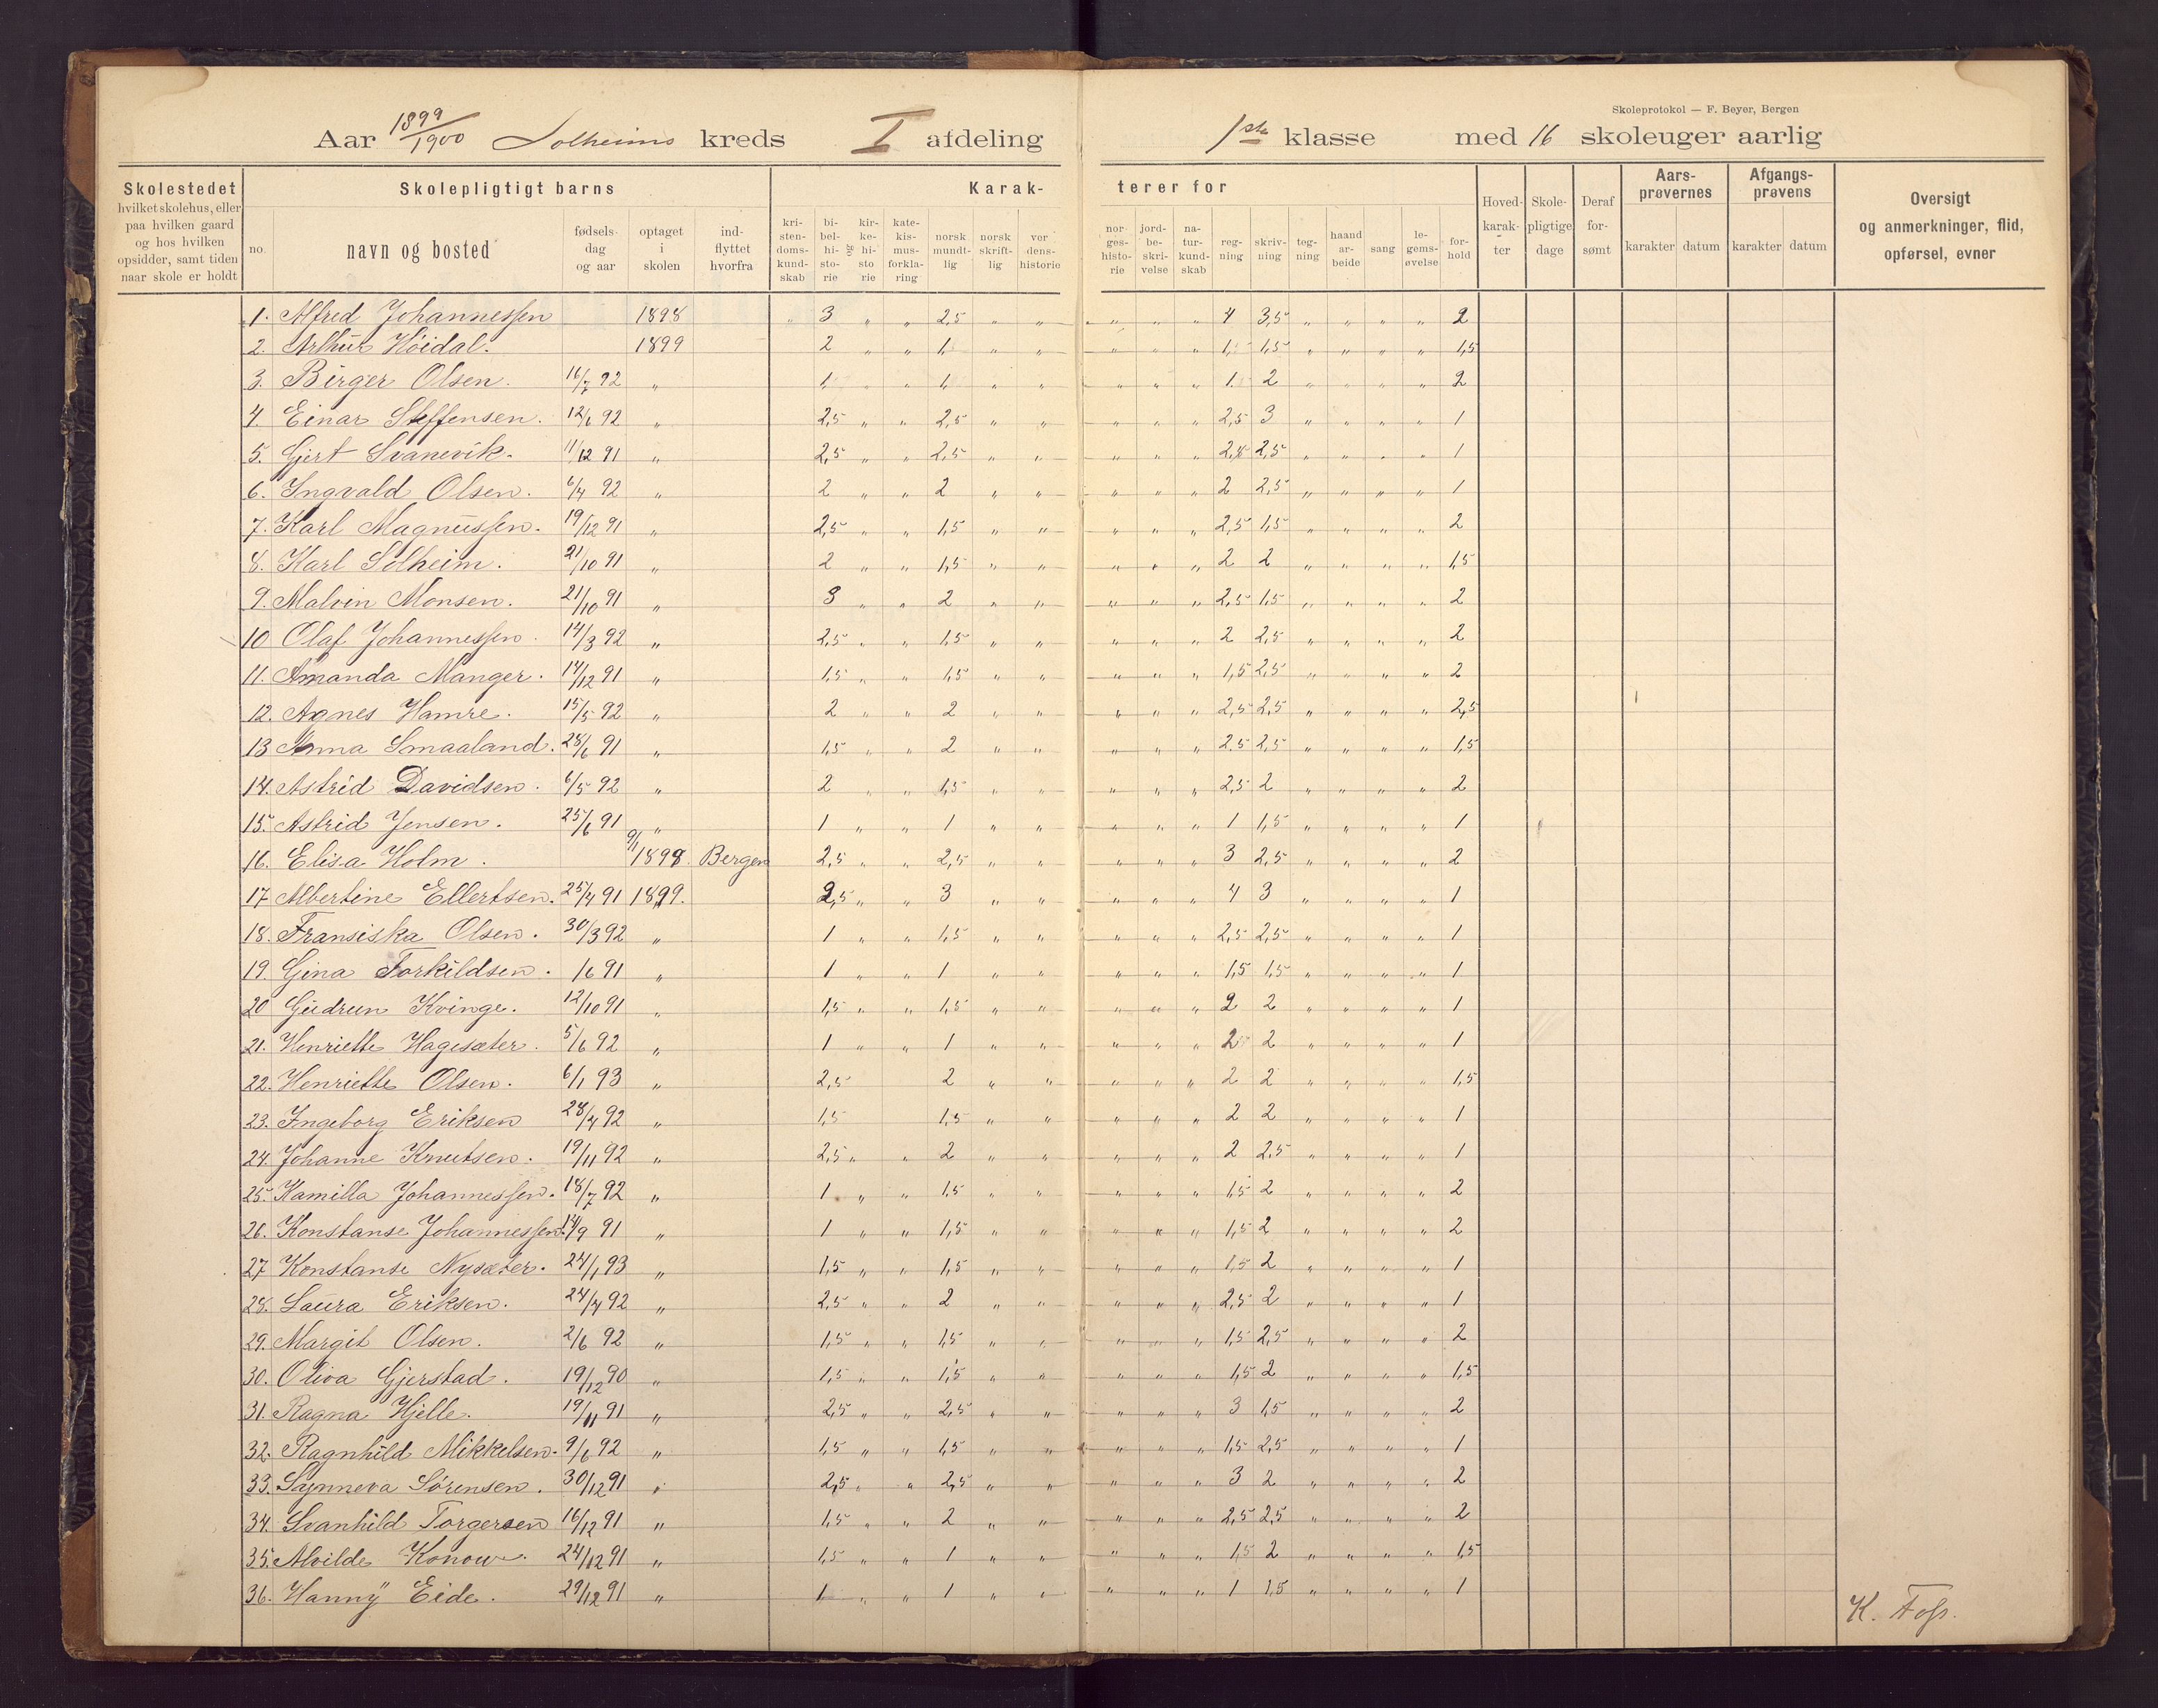 Skoleprotokol — F. Beyer, Bergen
Aar 1899/1900 Solheims kreds I afdeling 1ste klasse med 16 skoleuger aarlig
Skolestedet hvilket skolehus, eller paa hvilken gaard og hos hvilken opsidder, samt tiden naar skole er holdt
Skolepligtigt barns
no. navn og bosted fødsels-dag og aar optaget i skolen ind-flyttet hvorfra
Karak-terer for
kri-sten-doms-kund-skab bi-bel-hi-sto-rie og kir-ke-hi-sto-rie kate-kis-mus-forkla-ring norsk mundt-lig norsk skrift-lig ver-dens-historie nor-ges-histo-rie jord-be-skri-velse na-tur-kund-skab reg-ning skriv-ning teg-ning haand-ar-beide sang le-gems-øvelse for-hold
Hoved-karak-ter Skole-pligtige dage Deraf for-sømt
Aars-prøvernes karakter datum Afgangs-prøvens karakter datum
Oversigt og anmerkninger, flid, opførsel, evner
1. Alfred Johannessen 1898 " 3 " " 2,5 " " " " " 4 3,5 " " " " 2
2. Arthur Höidal. 1899 2 " " 1 " " " " " 1, 1,5 " " " " 1,5
3. Birger Olsen. 16/7 92 " 1 " " 1 " " " " " 1. 2 " " " " 2
4. Einar Steffensen. 12/6 92 " 2,5 " " 2,5 " " " " " 2,5 3 " " " " 1
5. Gjert Svanevik. 11/12 91 " 2,5 " " 2,5 " " " " " 2,5 2,5 " " " " 1
6. Ingvald Olsen. 6/4 92 " 2 " " 2 " " " " " 2 2,5 " " " " 1
7. Karl Magnussen. 19/12 91 " 2,5 " " 1,5 " " " " " 2,5 1,5 " " " " 2
8. Karl Solheim. 21/10 91 " 2 " " 1,5 " " " " " 2 2 " " " " 1,5
9. Malvin Monsen. 21/10 91 " 3 " " 2 " " " " " 2,5 1,5 " " " " 2
10 Olaf Johannessen. 14/3 92 " 2,5 " " 1,5 " " " " " 2 2,5 " " " " 2
11. Amanda Manger. 14/12 91 " 1,5 " " 1,5 " " " " " 1,5 2,5 " " " " 2
12. Agnes Hamre. 15/5 92 " 2 " " 2 " " " " " 2,5 2,5 " " " " 2,5
13 Anna Smaaland. 28/6 91 " 1,5 " " 2 " " " " " 2,5 2,5 " " " " 1,5
14. Astrid Davidsen. 6/5 92 " 2 " " 1,5 " " " " " 2,5 2 " " " " 2
15. Astrid Jensen. 25/6 91 " 1 " " 1 " " " " " 1 1,5 " " " " 1
16. Elisa Holm. 9/1 1898. Bergen 2,5 " " 2,5 " " " " " 3 2,5 " " " " 2
17 Albertine Ellertsen. 25/4 91 1899. 2,5 " " 3 " " " " " 4 3 " " " " 1
18. Fransiska Olsen. 30/3 92 " 1 " " 1,5 " " " " " 2,5 2,5 " " " " 1
19. Gina Torkildsen. /6 91 " 1 " " 1 " " " " " 1,5 1,5 " " " " 1
20 Gudrun Kvinge. 12/10 91 " 1,5 " " 1,5 " " " " " 2 2 " " " " 1
21. Henriette Hagesæter. 5/6 92 " 1 " " 1 " " " " " 2 2 " " " " 1
22. Henriette Olsen. 6/1 93 " 2,5 2 " " " " " 2 2 " " " " 1,5
23. Ingeborg Eriksen 28/4 92 " 1,5 1,5 " " " " " 2 2 " " " " 1
24. Johanne Knutsen. 19/11 92 " 2,5 " " 2 " " " " " 2 2,5 " " " " 1
25. Kamilla Johannessen. 18/7 92 " 1 " " 1,5 " " " " " 1,5 2 " " " " 2
26. Konstanse Johannessen. 14/9 91 " 1 " " 1,5 " " " " " 1,5 2 " " " " 2
27 Konstanse Nysæter. 24/1 93 " 1,5 " " 1,5 " " " " " 1,5 2 " " " " 1
28. Laura Eriksen. 24/4 92 " 2,5 " " 2 " " " " " 2,5 2 " " " " 1
29. Margit Olsen. 2/6 92 " 1,5 " " 1,5 " " " " " 1,5 2,5 " " " " 2
30. Oliva Gjerstad. 19/12 90 " 1,5 " " 1,5 " " " " " 1,5 2 " " " " 1,5
31. Ragna Hjelle. 19/11 91 " 2,5 " " 2,5 " " " " " 3 1,5 " " " " 2
32. Ragnhild Mikkelsen. 9/6 92 " 1,5 " " 1,5 " " " " " 1,5 2,5 " " " " 1
33. Synneva Sörensen. 30/12 91 " 2,5 " " 2,5 " " " " " 3 2 " " " " 2
34. Svanhild Torgersen 16/12 91 " 1,5 " " 2 " " " " " 2,5 2,5 " " " " 2
35. Alvilde Konow. 24/12 91 " 1,5 " " 1 " " " " " 1,5 2 " " " " 1,5
36. Hanny Eide. 29/12 91 " 1 " " 1 " " " " " 1 1,5 " " " " 1
K. Foss.